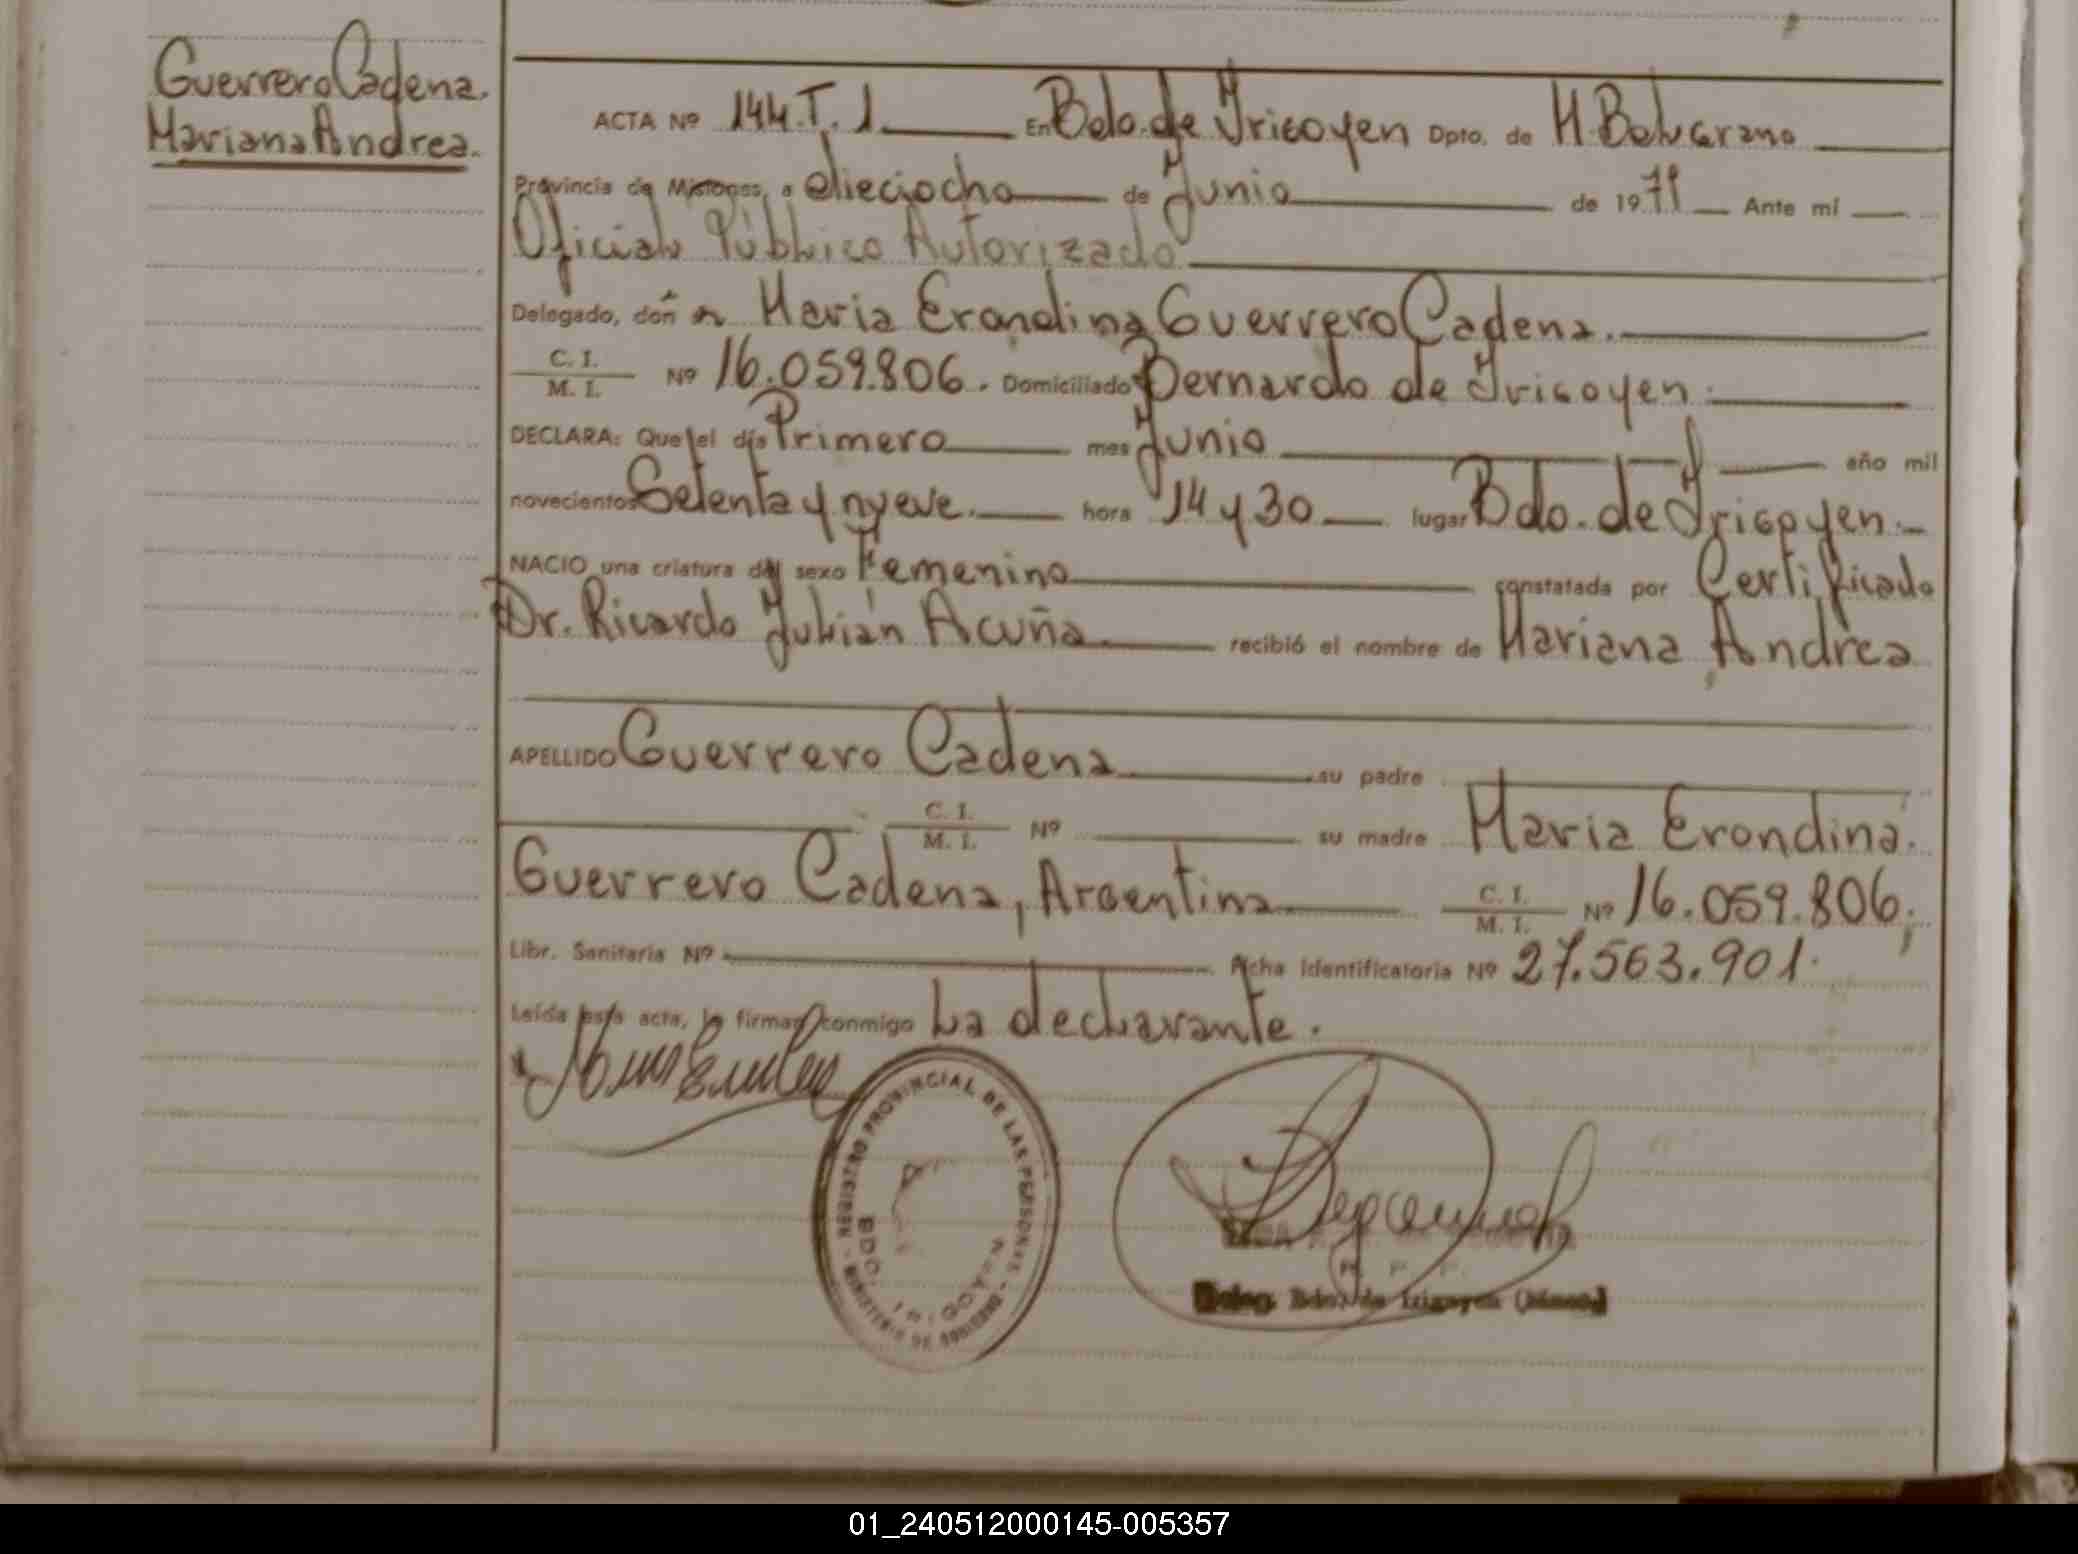 Guerrero Cadena.
Mariana Andrea.
ACTA Nº 144.T.1 En Bdo. de Irigoyen Dpto. de M. Belgrano
Provincia de Misiones, a dieciocho de Junio de 1979 Ante mi
Oficial Público Autorizado
Delegado, don María Erondina Guerrero Cadena.
C. I.
M. I. Nº 16.059.806. Domiciliado Bernardo de Irigoyen.
DECLARA: Que el día Primero mes Junio año mil
novecientos Setenta y nueve. hora 14 y 30 lugar Bdo. de Irigoyen.
NACIO una criatura de sexo Femenino constatada por Certificado
Dr. Ricardo Julián Acuña recibió el nombre de Mariana Andrea
APELLIDO Guerrero Cadena su padre
C. I.
M. I. Nº su madre María Erondina.
Guerrero Cadena, Argentina C. I.
M. I. Nº 16.059.806.
Libr. Sanitaria Nº Ficha Identificatoria Nº 27.563.901.
Leída esta acta, la firman conmigo La declarante.
REGISTRO PROVINCIAL DE LAS PERSONAS - MINISTERIO DE GOBIERNO -
BDO. IRIGOYEN
Deleg. Bdo. de Irigoyen
01_240512000145-005357